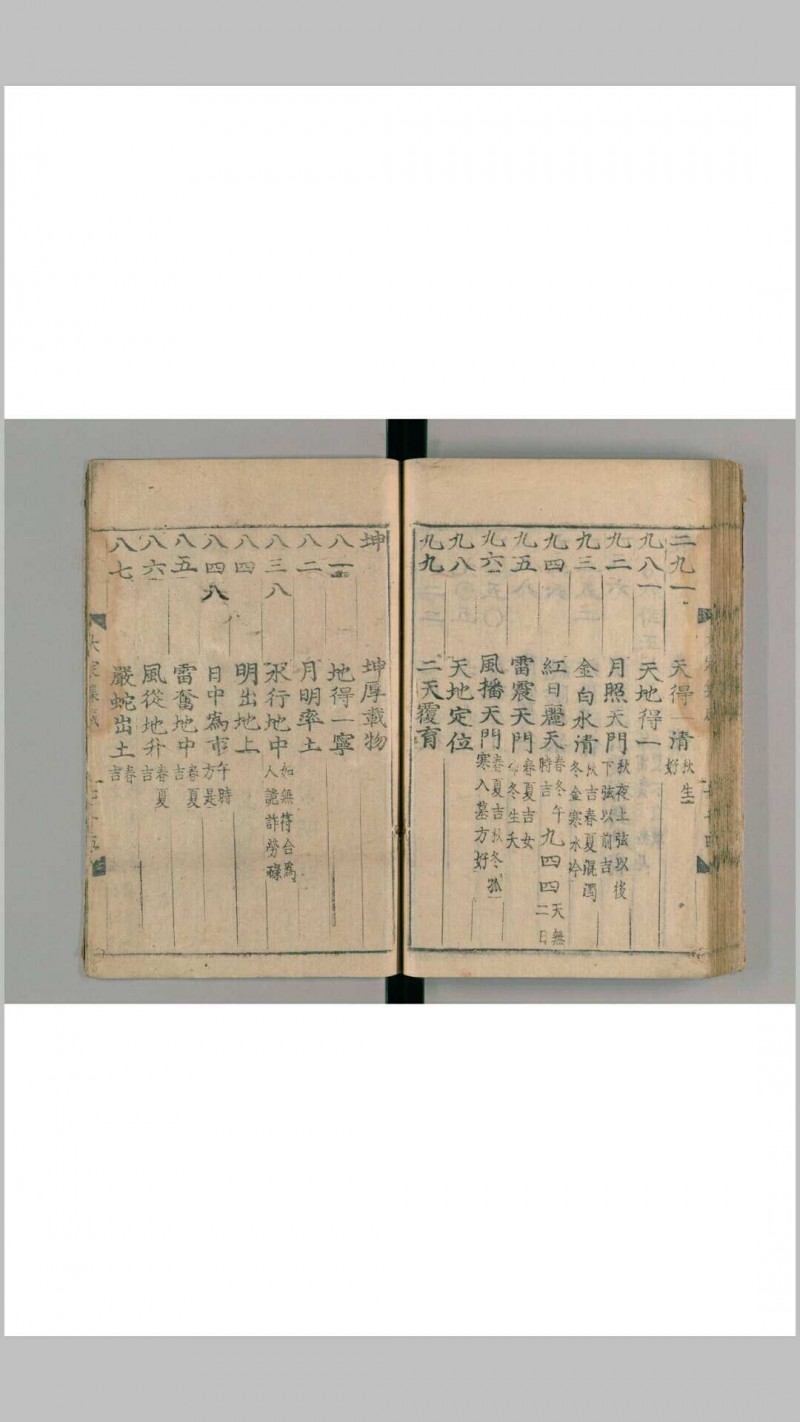 二九一 天得一清 秋生
好
九八一 天地得一
九二 月照天門 秋夜上弦以後
下弦以前吉
九三 金白水清 秋吉春夏混濁
冬金寒水冷
九四 紅日麗天 春冬午
時吉 九四四 天無
二日
九五 雷震天門 春夏吉女
冬生夭
九六 風播天門 春夏吉秋冬孤
寒入墓方好
九八 天地定位
九九 二天覆育
坤 坤厚載物
八一 地得一寧
八二 月明率土
八三八 水行地中 如無符合爲
人詭詐勞碌
八四 明出地上
八四八 日中爲市 午時
方是
八五 雷奮地中 春夏
吉
八六 風從地升 春夏
吉
八七 嚴蛇出土 春
吉